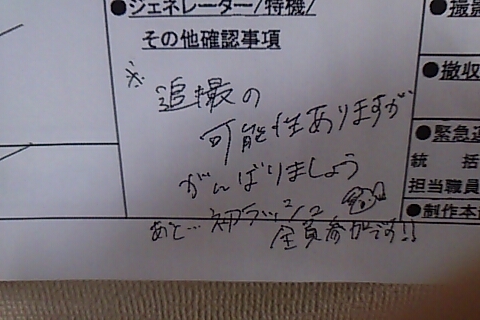 ●ジェネレーター/特機/
その他確認事項
※追撮の
可能性ありますが
がんばりましょう
あと…初ラッシュ
全員参加です!!
●撮影
●撤収
●緊急連
統 括
担当職員
●制作本